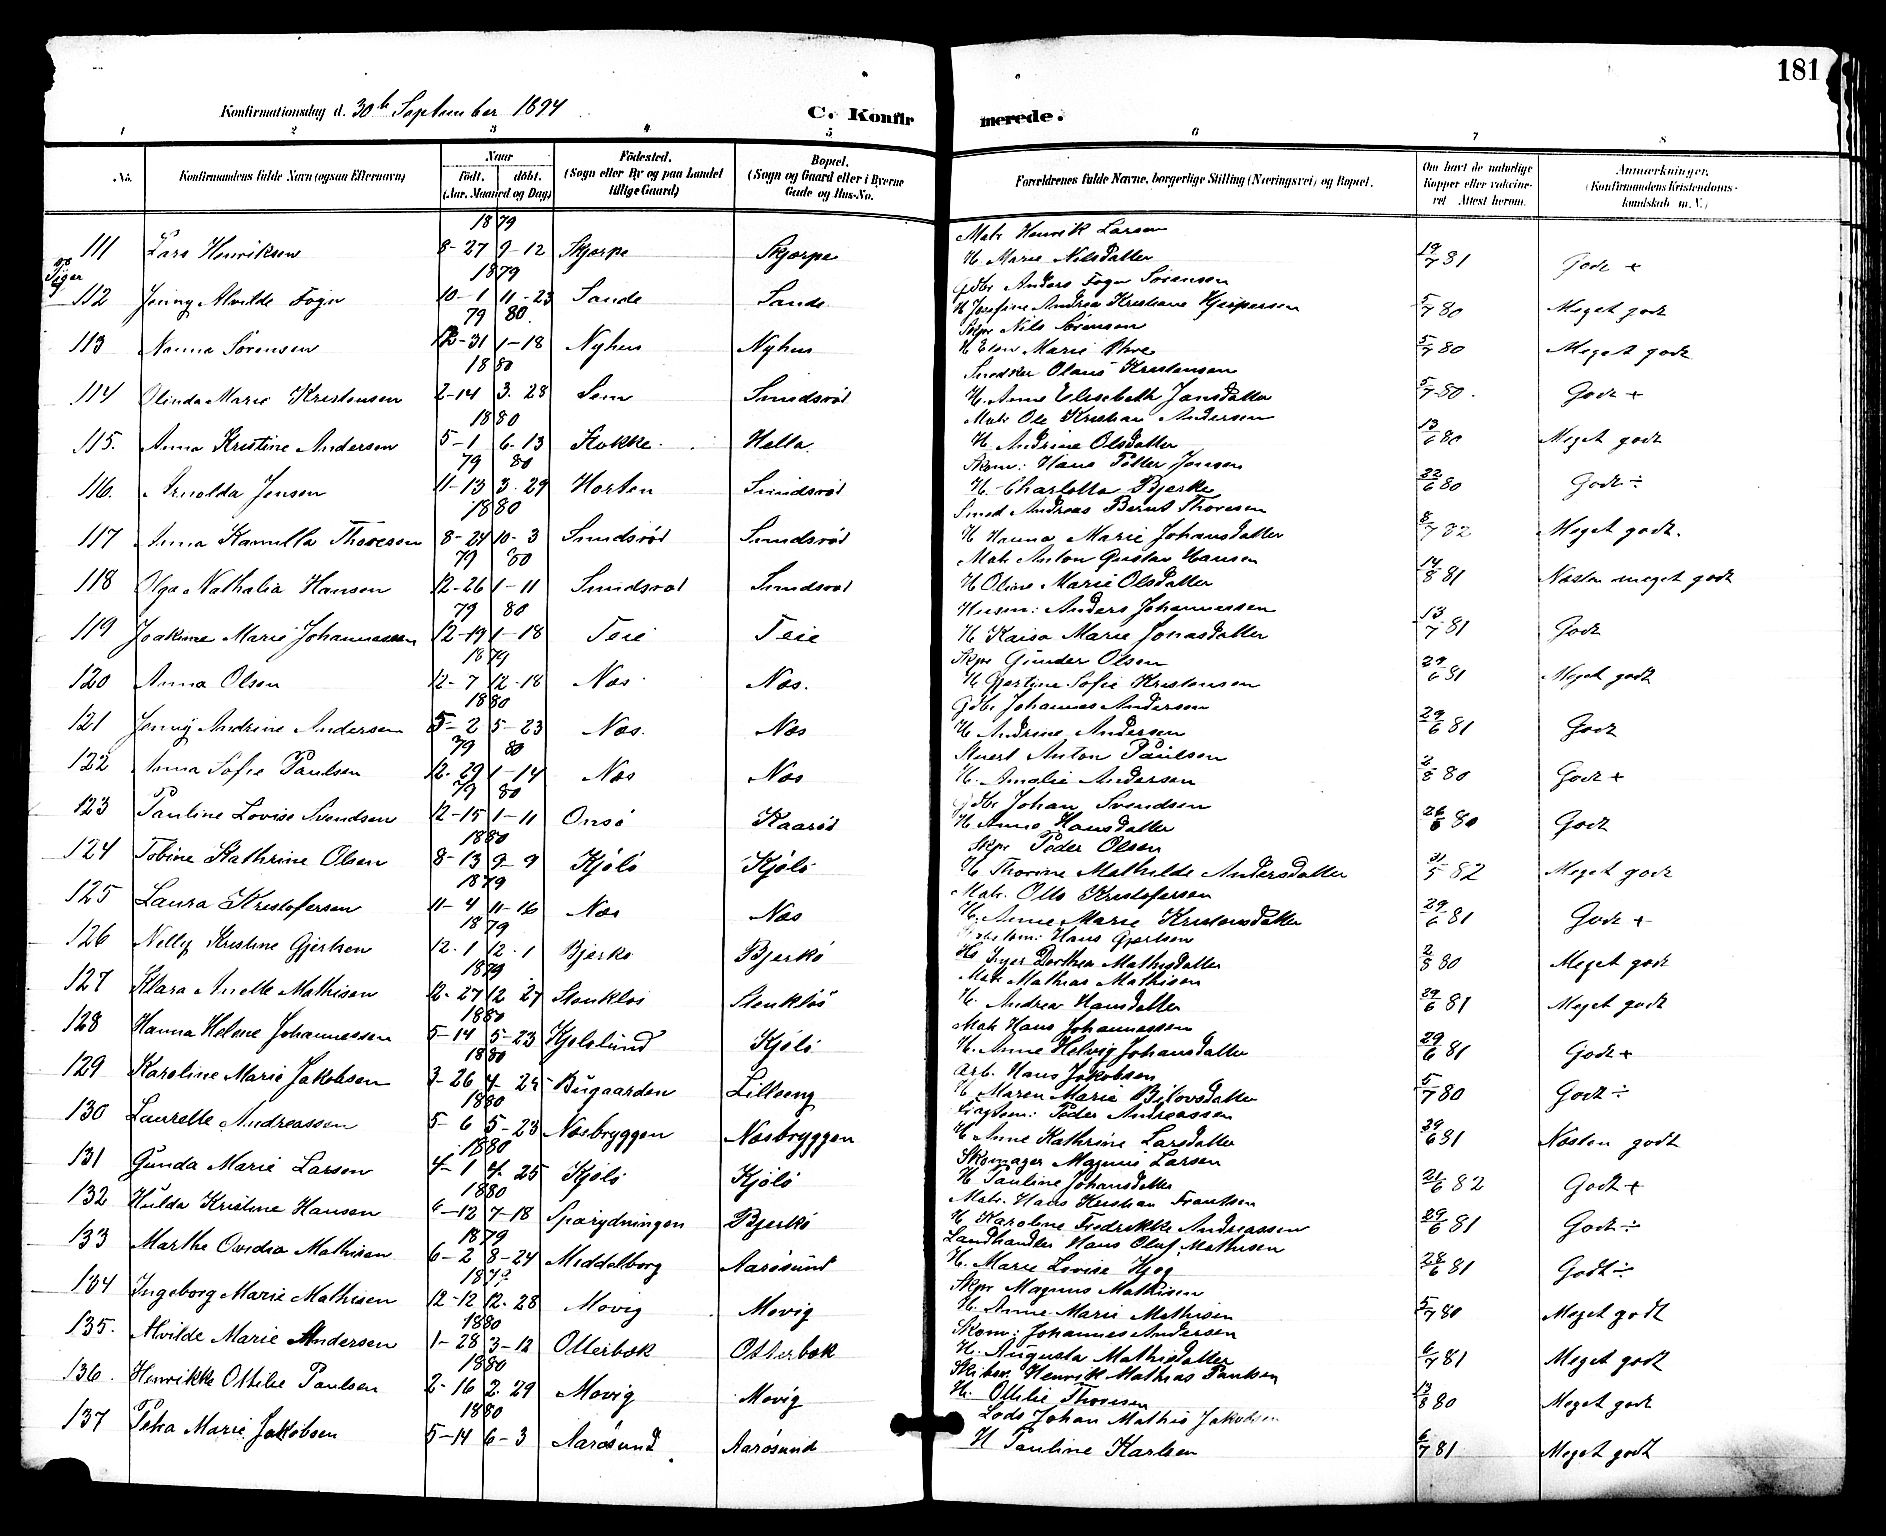 181
Konfirmationsdag d. 30te September 1894 C. Konfirmerede.
1 2 3 4 5 6 7 8
No. Konfirmandens fulde Navn (ogsaa Efternavn) Naar födt. döbt. (Aar, Maaned og Dag) Födested. (Sogn eller By og paa Landet tillige Gaard) Bopæl. (Sogn og Gaard eller i Byerne Gade og Hus-No. Forældrenes fulde Navne, borgerlige Stilling (Næringsvei) og Bopæl. Om havt de naturlige Kopper eller vakcineret Attest herom. Anmærkninger. (Konfirmandens Kristendomskundskab m. V.)
1879 Matr Henrik Larsen
111 Lars Henriksen 8-27 9-12 Skjærpe Skjærpe H. Marie Nilsdatter 19/7 81 Godt +
Piger
1879 Gdbr Anders Fogn Sørensen
112 Jenny Alvilde Fogn 10-1 11-23 Sande Sande H Josefine Andrea Kristiane Kjespersen 5/7 80 Meget godt
79 80 Skpr Nils Sørensen
113 Nanna Sørensen 12-31 1-18 Nyhus Nyhus H Elen Marie 5/7 80 Meget godt
1880 Snedker Olaus Kristensen
114 Olinda Marie Kristensen 2-14 3-28 Sem Smidsrød H. Anne Elisebeth Jansdatter 5/7 80 Godt +
1880 Matr Ole Kristian Andersen
115. Anna Kristine Andersen 5-1 6-13 Stokke Hella H. Andrine Olsdatter 13/6 80 Meget godt
79 80 Skom: Hans Petter Jensen
116. Arnolda Jensen 11-13 3-29 Horten Smidsrød H. Charlotta Bjerke 22/6 80 Godt ÷
1880 Smed Andreas Bernt Thoresen
117 Anna Kamilla Thoresen 8-24 10-3 Smidsrød Smidsrød H Hanna Marie Johansdatter 8/7 82 Meget godt.
79 80 Matr Anton Gustav Hansen
118 Olga Nathalia Hansen 12-26 1-11 Smidsrød Smidsrød H Oline Marie Olsdatter 14/8 81 Næsten meget godt
79 80 Husm: Anders Johannessen
119 Joakime Marie Johannessen 12-19 1-18 Teie Teie H Kaisa Marie Jonasdatter 13/7 81 Godt
1879 Skpr Gunder Olsen
120 Anna Olsen 12-7 12-18 Næs Næs. H Gjertine Sofie Kristensen 29/6 81 Meget godt
1880 Gdbr Johannes Andersen
121 Jenny Andrine Andersen 5-2 5-23 Næs. Næs H Andrine Andersen 29/6 81 Godt
79 80 Stuert Anton Paulsen
122 Anna Sofie Paulsen 12-29 1-14 Næs Næs H. Amalie Andersen 2/8 80 Godt +
79 80 Gdbr Johan Svendsen
123 Pauline Lovise Svendsen 12-15 1-11 Onsø Kaarød H. Anne Hansdatter 26/6 80 Godt
1880 Skpr Peder Olsen
124 Tobine Kathrine Olsen 8-13 9-9 Kjølø Kjølø H. Thorine Mathilde Andersdatter 31/5 82 Meget godt
1879 Matr. Otto Kristofersen
125 Laura Kristofersen 11-4 11-16 Næs Næs H. Anne Marie Kristensdatter 29/6 81 Godt +
1879 Hans Gjertsen
126 Nelly Kristine Gjertsen 12-1 12-1 Bjerkø Bjerkø H. Inger Dorthea Mathisdatter 2/8 80 Meget godt
1879 Matr Mathias Mathisen
127 Klara Anette Mathisen 12-27 12 27 Stenkløs Stenkløs H. Andrea Hansdatter 29/6 81 Meget godt
1880 Matr Hans Johannessen
128 Hanna Helene Johannessen 5-14 5-23 Kjølelund Kjølø H. Anne Helvig Johansdatter 29/6 81 Godt +
1880 Arb. Hans Jakobsen
129 Karoline Marie Jakobsen 3-26 4-25 Bugaarden Lilleeng H Maren Marie Bilovsdatter 5/7 80 Godt ÷
1880 Fragtem: Peder Andreassen
130 Laurette Andreassen 5-6 5-23 Næsbryggen Næsbryggen H Anne Kathrine Larsdatter 29/6 81 Næsten godt
1880 Skomager Magnus Larsen
131 Gunda Marie Larsen 4-1 4-25 Kjølø Kjølø H Pauline Johansdatter 21/6 82 Godt +
1880 Matr. Hans Kristian Frantsen
132 Hulda Kristine Hansen 6-12 7-18 Sparydningen Bjerkø H Karoline Fredrikke Andreassen 29/6 81 Godt ÷
1879 Landhandler Hans Oluf Mathisen
133 Marthe Ovedia Mathisen 6-2 8-24 Meddelborg Aarøsund H. Marie Lovise Hjog 28/6 81 Godt ÷
1879 Skpr Magnus Mathisen
134 Ingeborg Marie Mathisen 12-12 12-28 Movig Movig H. Anne Marie Mathisen 5/7 80 Meget godt
1880 Skom: Johannes Andersen
135. Alvilde Marie Andersen 1-28 3-12 Otterbæk Otterbæk H. Augusta Mathisdatter 6/7 81 Meget godt
1880 Skiber Henrik Mathias Paulsen
136. Henrikke Ottilie Paulsen 2-16 2-29 Movig Movig H. Ottilie Thoresen 13/8 80 Meget godt
1880 Lods Johan Mathis Jakobsen
137 Petra Marie Jakobsen 5-14 6-3 Aarøsund Aarøsund H Pauline Karlsen 6/7 81 Meget godt